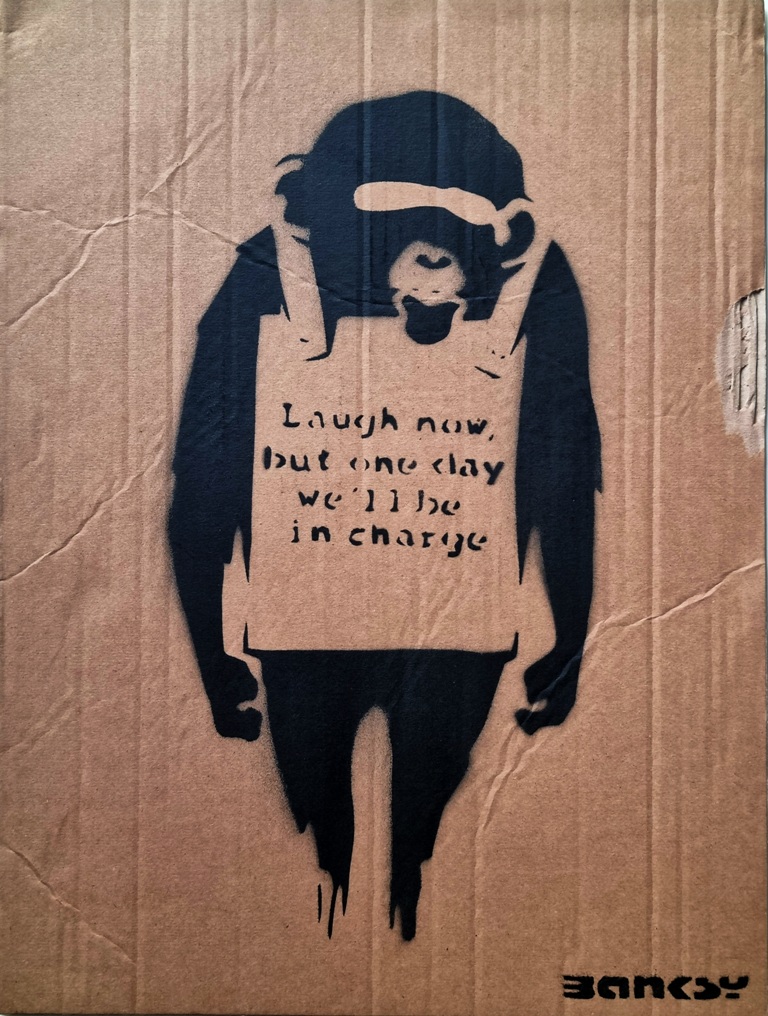 Laugh now,
but one day
we'll be
in charge
BANKSY